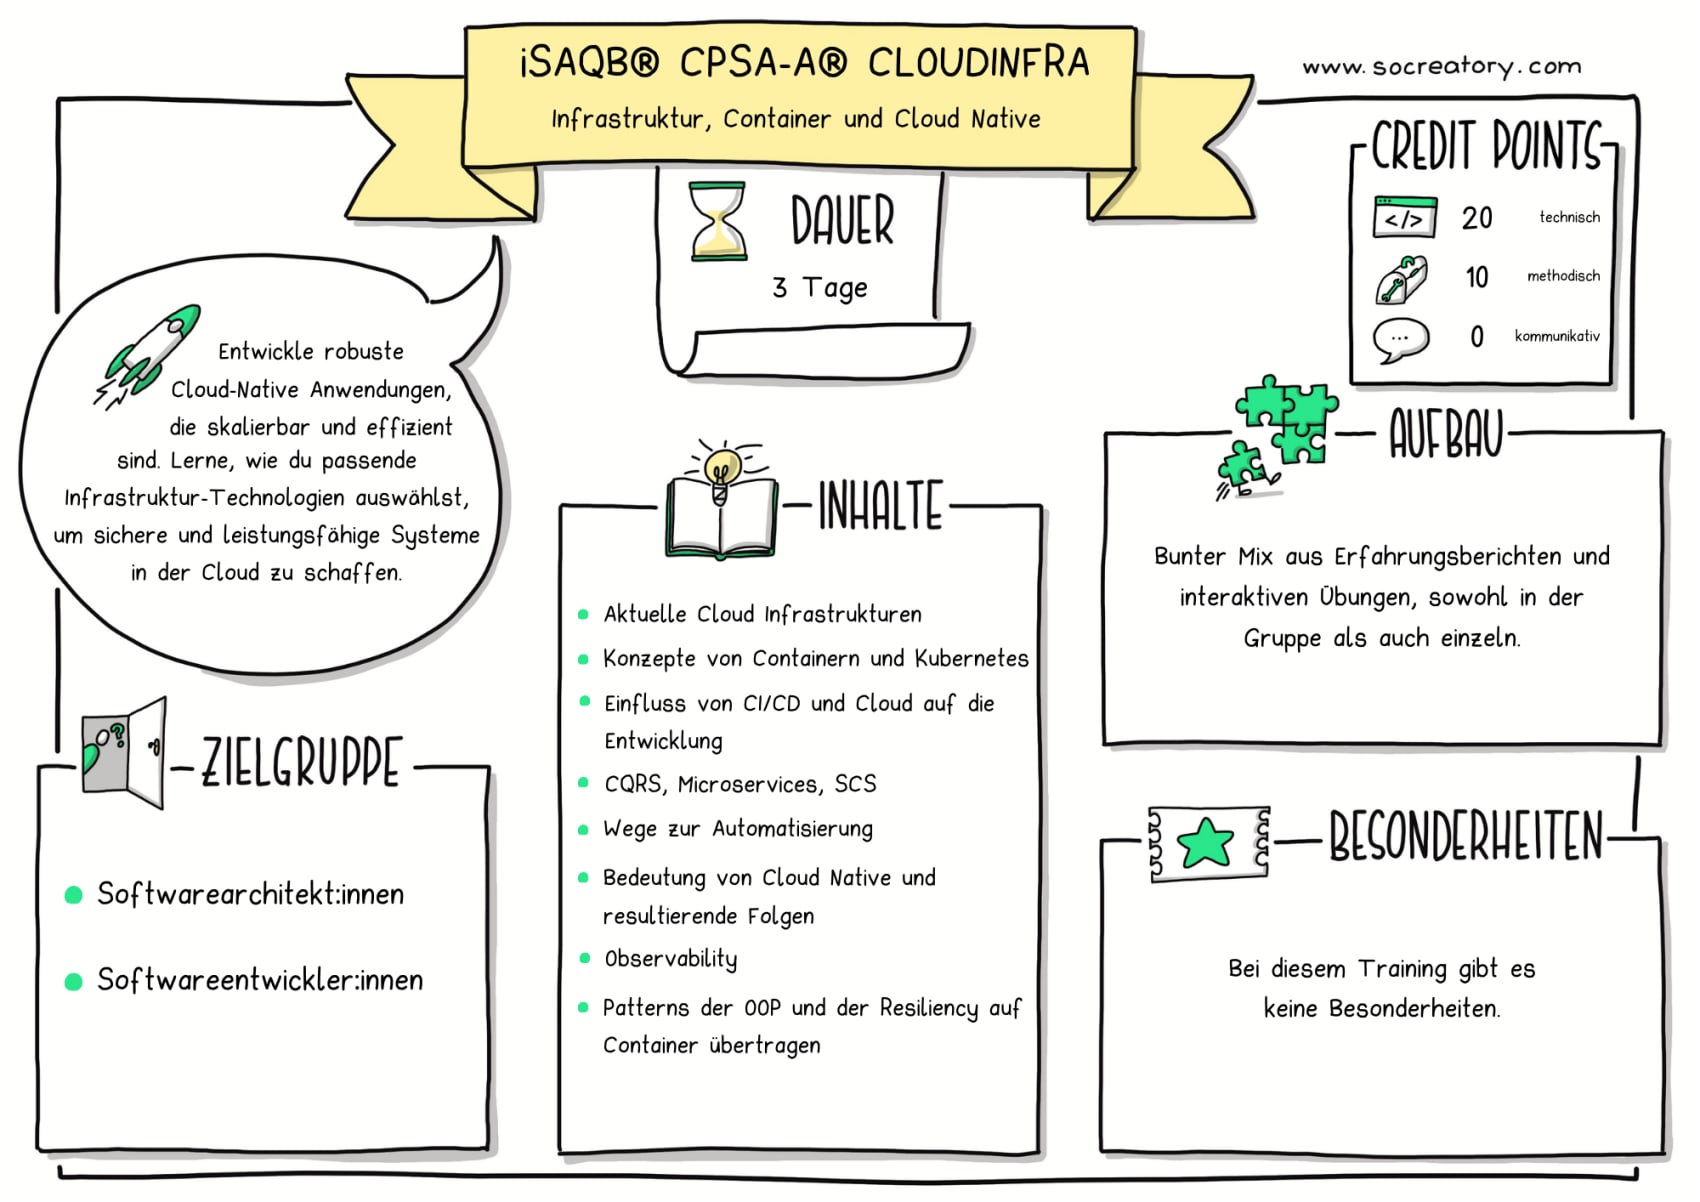 iSAQB® CPSA-A® CLOUDINFRA
Infrastruktur, Container und Cloud Native
www.socreatory.com
CREDIT POINTS
</>
20 technisch
10 methodisch
0 kommunikativ
DAUER
3 Tage
Entwickle robuste
Cloud-Native Anwendungen,
die skalierbar und effizient
sind. Lerne, wie du passende
Infrastruktur-Technologien auswählst,
um sichere und leistungsfähige Systeme
in der Cloud zu schaffen.
ZIELGRUPPE
Softwarearchitekt:innen
Softwareentwickler:innen
INHALTE
Aktuelle Cloud Infrastrukturen
Konzepte von Containern und Kubernetes
Einfluss von CI/CD und Cloud auf die
Entwicklung
CQRS, Microservices, SCS
Wege zur Automatisierung
Bedeutung von Cloud Native und
resultierende Folgen
Observability
Patterns der OOP und der Resiliency auf
Container übertragen
AUFBAU
Bunter Mix aus Erfahrungsberichten und
interaktiven Übungen, sowohl in der
Gruppe als auch einzeln.
BESONDERHEITEN
Bei diesem Training gibt es
keine Besonderheiten.